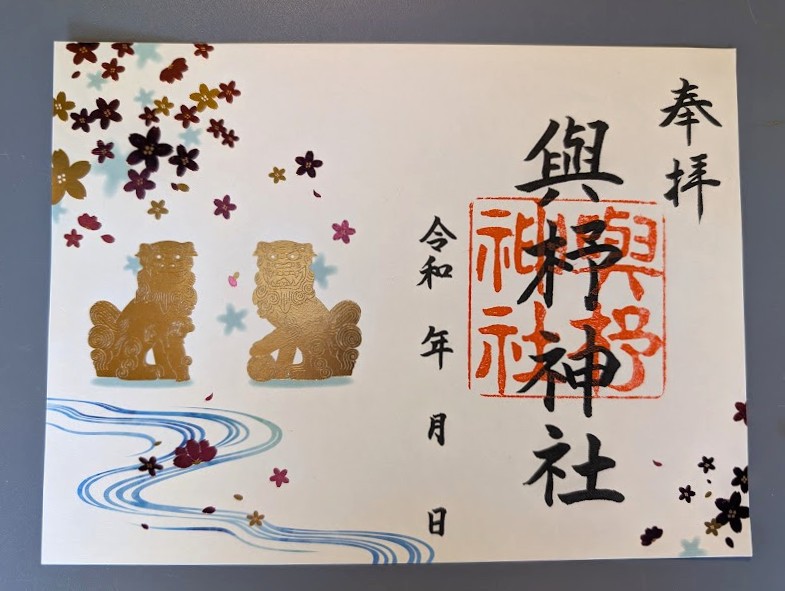 奉拝
與杼神社
與杼
神社
令和 年 月 日